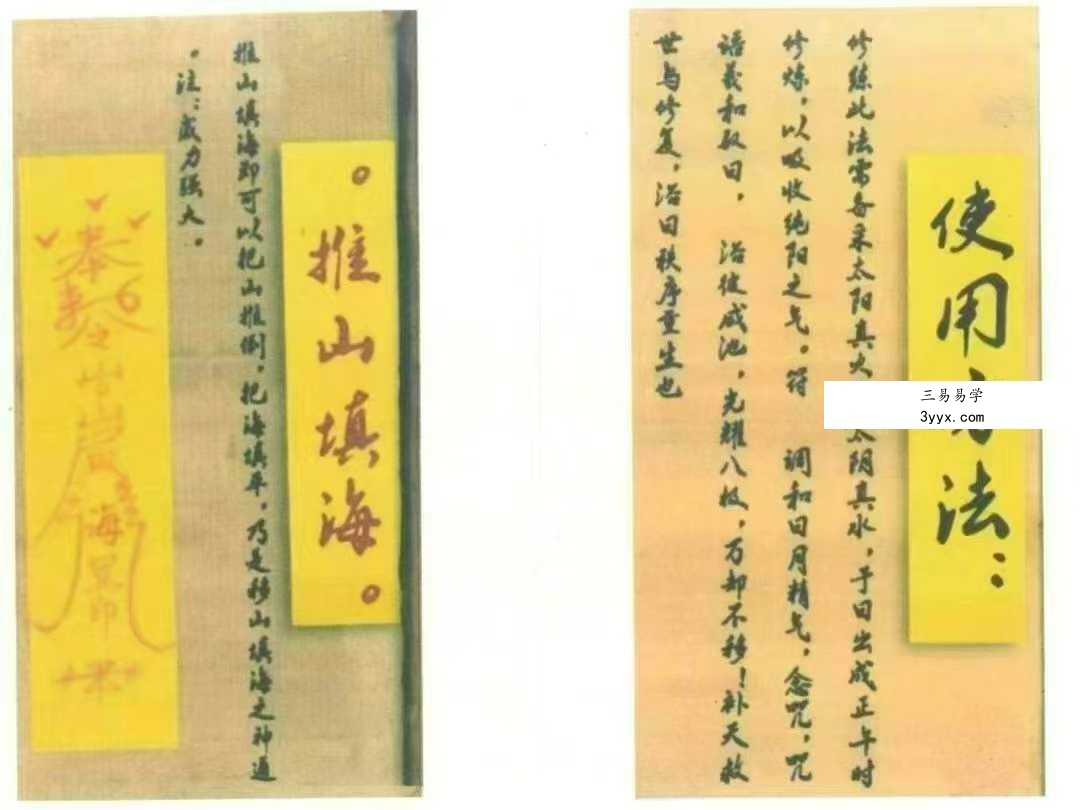 。推山填海。
推山填海即可以把山推倒，把海填平，乃是移山填海之神通
。注：威力强大。
奉
海
印
使用方法：
修练此法需备采太阳真火太阴真水，于日出成正午时
修炼，以吸收纯阳之气。符 调和日月精气，念咒，咒
语羲和驭日， 沿彼咸池，光耀八极，万却不移！补天救
世与修复，沿日秩序重生也
三易易学
3yyx.com